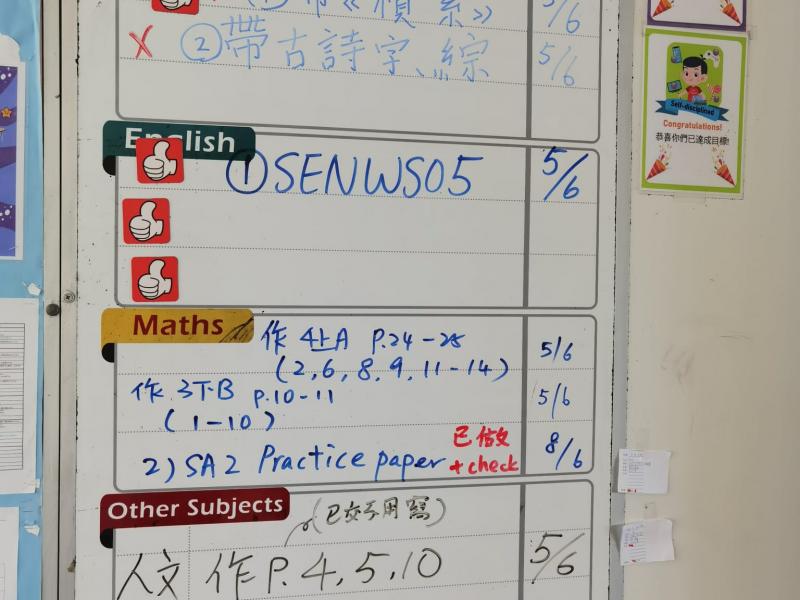 ①帶《積累》 5/6
✗ ②帶古詩字、綜 5/6
English
①SENWS05 5/6
Maths
作 4上A P.24-25 5/6
(2,6,8,9,11-14)
作 3下B P.10-11 5/6
(1-10)
2) SA2 Practice paper 已估收 + check 8/6
Other Subjects
(已交不用寫)
人文 作P.4,5,10 5/6
Self-disciplined
Congratulations!
恭喜你們已達成目標!